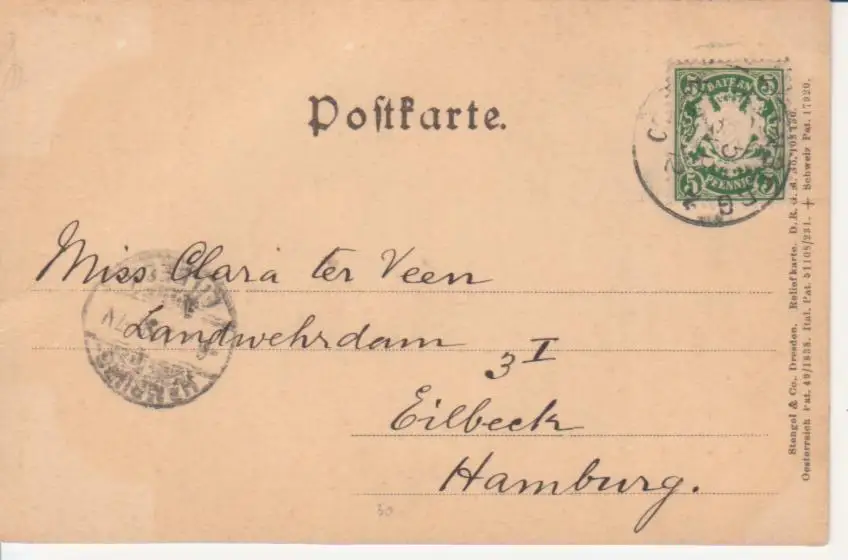 Postkarte.
5 BAYERN 5
5 PFENNIG 5
Miss Clara ter Veen
Landwehrdam
3 I
Eilbeck
Hamburg.
30
Stengel & Co., Dresden. Reliefkarte. D. R. G. M. No.
Oesterreich Pat. 49/1838. Ital. Pat. 51105/231. + Schweiz Pat. 17920.
HAMBURG